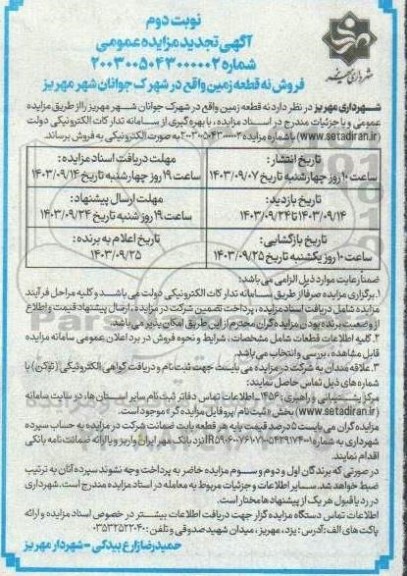 نوبت دوم
آگهی تجدید مزایده عمومی
شماره ۲۰۰۳۰۰۵۰۴۳۰۰۰۰۰۲
فروش نه قطعه زمین واقع در شهرک جوانان شهر مهریز
شهرداری مهریز
شهرداری مهریز در نظر دارد نه قطعه زمین واقع در شهرک جوانان شهر مهریز را از طریق مزایده
عمومی و با جزئیات مندرج در اسناد مزایده، با بهره گیری از سامانه تدارکات الکترونیکی دولت
(www.setadiran.ir) با شماره مزایده ۲۰۰۳۰۰۵۰۴۳۰۰۰۰۰۲ به صورت الکترونیکی به فروش برساند.
تاریخ انتشار:
ساعت ۱۰ روز چهارشنبه تاریخ ۱۴۰۳/۰۹/۰۷
مهلت دریافت اسناد مزایده:
ساعت ۱۹ روز چهارشنبه تاریخ ۱۴۰۳/۰۹/۱۴
تاریخ بازدید:
۱۴۰۳/۰۹/۱۴ تا ۱۴۰۳/۰۹/۲۴
مهلت ارسال پیشنهاد:
ساعت ۱۹ روز شنبه تاریخ ۱۴۰۳/۰۹/۲۴
تاریخ بازگشایی:
ساعت ۱۰ روز یکشنبه تاریخ ۱۴۰۳/۰۹/۲۵
تاریخ اعلام به برنده:
۱۴۰۳/۰۹/۲۵
ضمناً رعایت موارد ذیل الزامی می باشد:
۱. برگزاری مزایده صرفا از طریق سامانه تدارکات الکترونیکی دولت می باشد و کلیه مراحل فرآیند
مزایده شامل دریافت اسناد مزایده، پرداخت تضمین شرکت در مزایده، ارسال پیشنهاد قیمت و اطلاع
از وضعیت برنده بودن مزایده گران محترم از این طریق امکان پذیر می باشد.
۲. کلیه اطلاعات قطعات شامل مشخصات، شرایط و نحوه فروش در برد اعلان عمومی سامانه مزایده
قابل مشاهده، بررسی و انتخاب می باشد.
۳. علاقه مندان به شرکت در مزایده می بایست جهت ثبت نام و دریافت گواهی الکترونیکی (توکن) با
شماره های ذیل تماس حاصل نمایند:
مرکز پشتیبانی و راهبری: ۱۴۵۶. اطلاعات تماس دفاتر ثبت نام سایر استان ها، در سایت سامانه
(www.setadiran.ir) بخش «ثبت نام / پروفایل مزایده گر» موجود است.
مزایده گران می بایست ۵ درصد قیمت پایه هر قطعه بابت ضمانت شرکت در مزایده به حساب سپرده
شهرداری به شماره نزد بانک مهر ایران واریز و یا ارائه ضمانت نامه بانکی
اقدام نمایند.
در صورتی که برندگان اول و دوم و سوم مزایده حاضر به پرداخت وجه نشوند سپرده آنان به ترتیب
ضبط خواهد شد. سایر اطلاعات و جزئیات مربوط به معامله در اسناد مزایده مندرج است. شهرداری
در رد یا قبول هر یک از پیشنهادها مختار است.
اطلاعات تماس دستگاه مزایده گزار جهت دریافت اطلاعات بیشتر در خصوص اسناد مزایده و ارائه
پاکت های الف: آدرس: یزد، مهریز، میدان شهید صدوقی و تلفن: ۰۳۵۳۲۵۲۲۰۴۰
حمیدرضا زارع بیدکی - شهردار مهریز